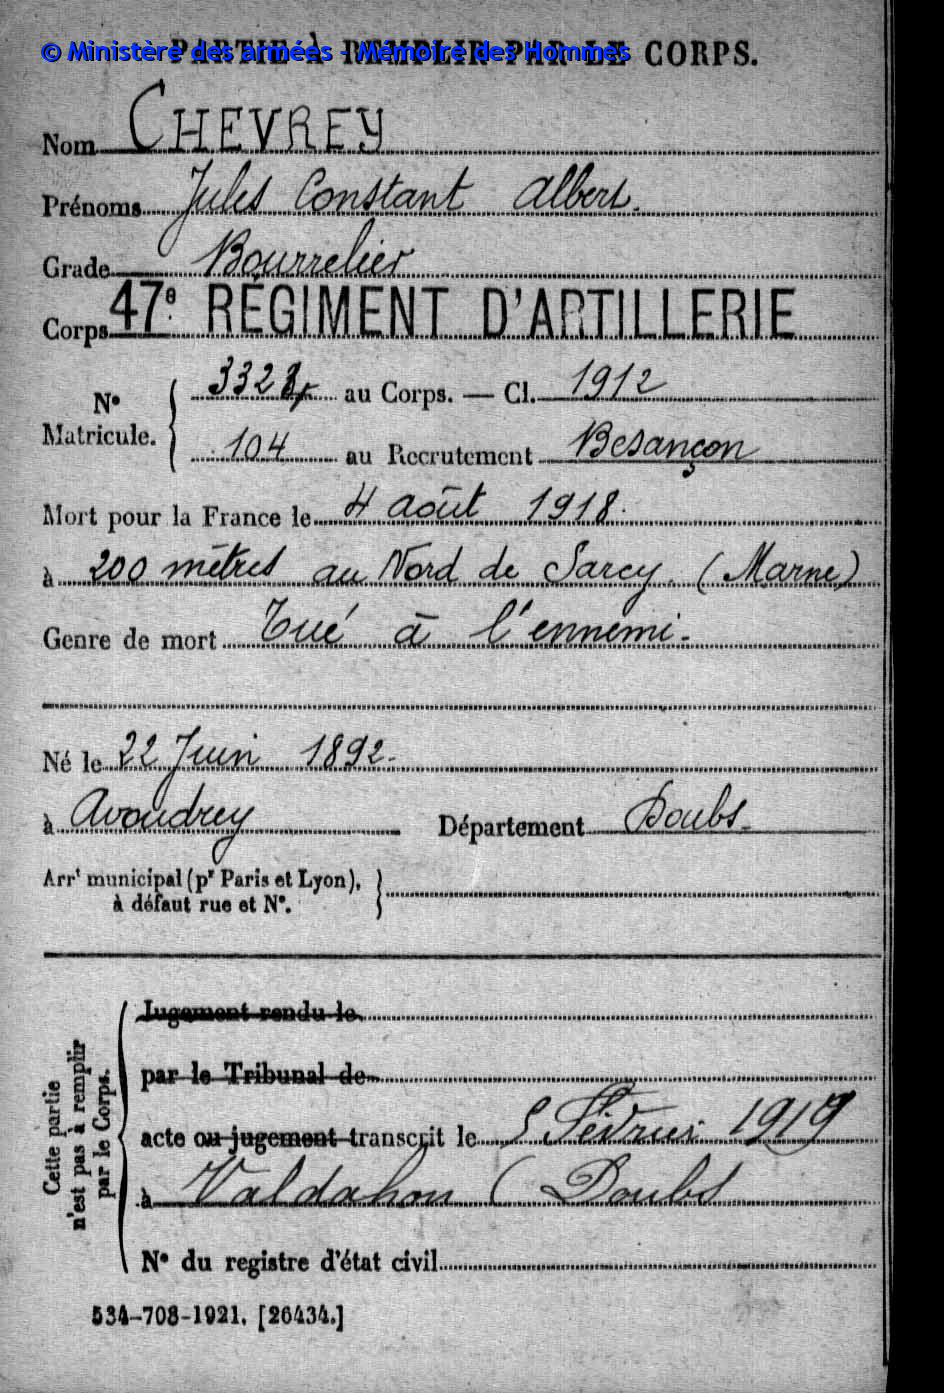 © Ministère des armées - Mémoire des Hommes
PARTIE À REMPLIR PAR LE CORPS.
Nom CHEVREY
Prénoms Jules Constant Albert.
Grade Bourrelier
Corps 47e RÉGIMENT D'ARTILLERIE
N° Matricule. { 3328 au Corps. — Cl. 1912
104 au Recrutement Besançon
Mort pour la France le 4 août 1918.
à 200 mètres au Nord de Sarcy. (Marne)
Genre de mort Tué à l'ennemi.
Né le 22 Juin 1892.
à Avoudrey Département Doubs.
Arrt municipal (pr Paris et Lyon),
à défaut rue et N°.
Cette partie n'est pas à remplir par le Corps.
Jugement rendu le
par le Tribunal de
acte ou jugement transcrit le 5 Février 1919
à Valdahon (Doubs
N° du registre d'état civil
534-708-1921. [26434.]